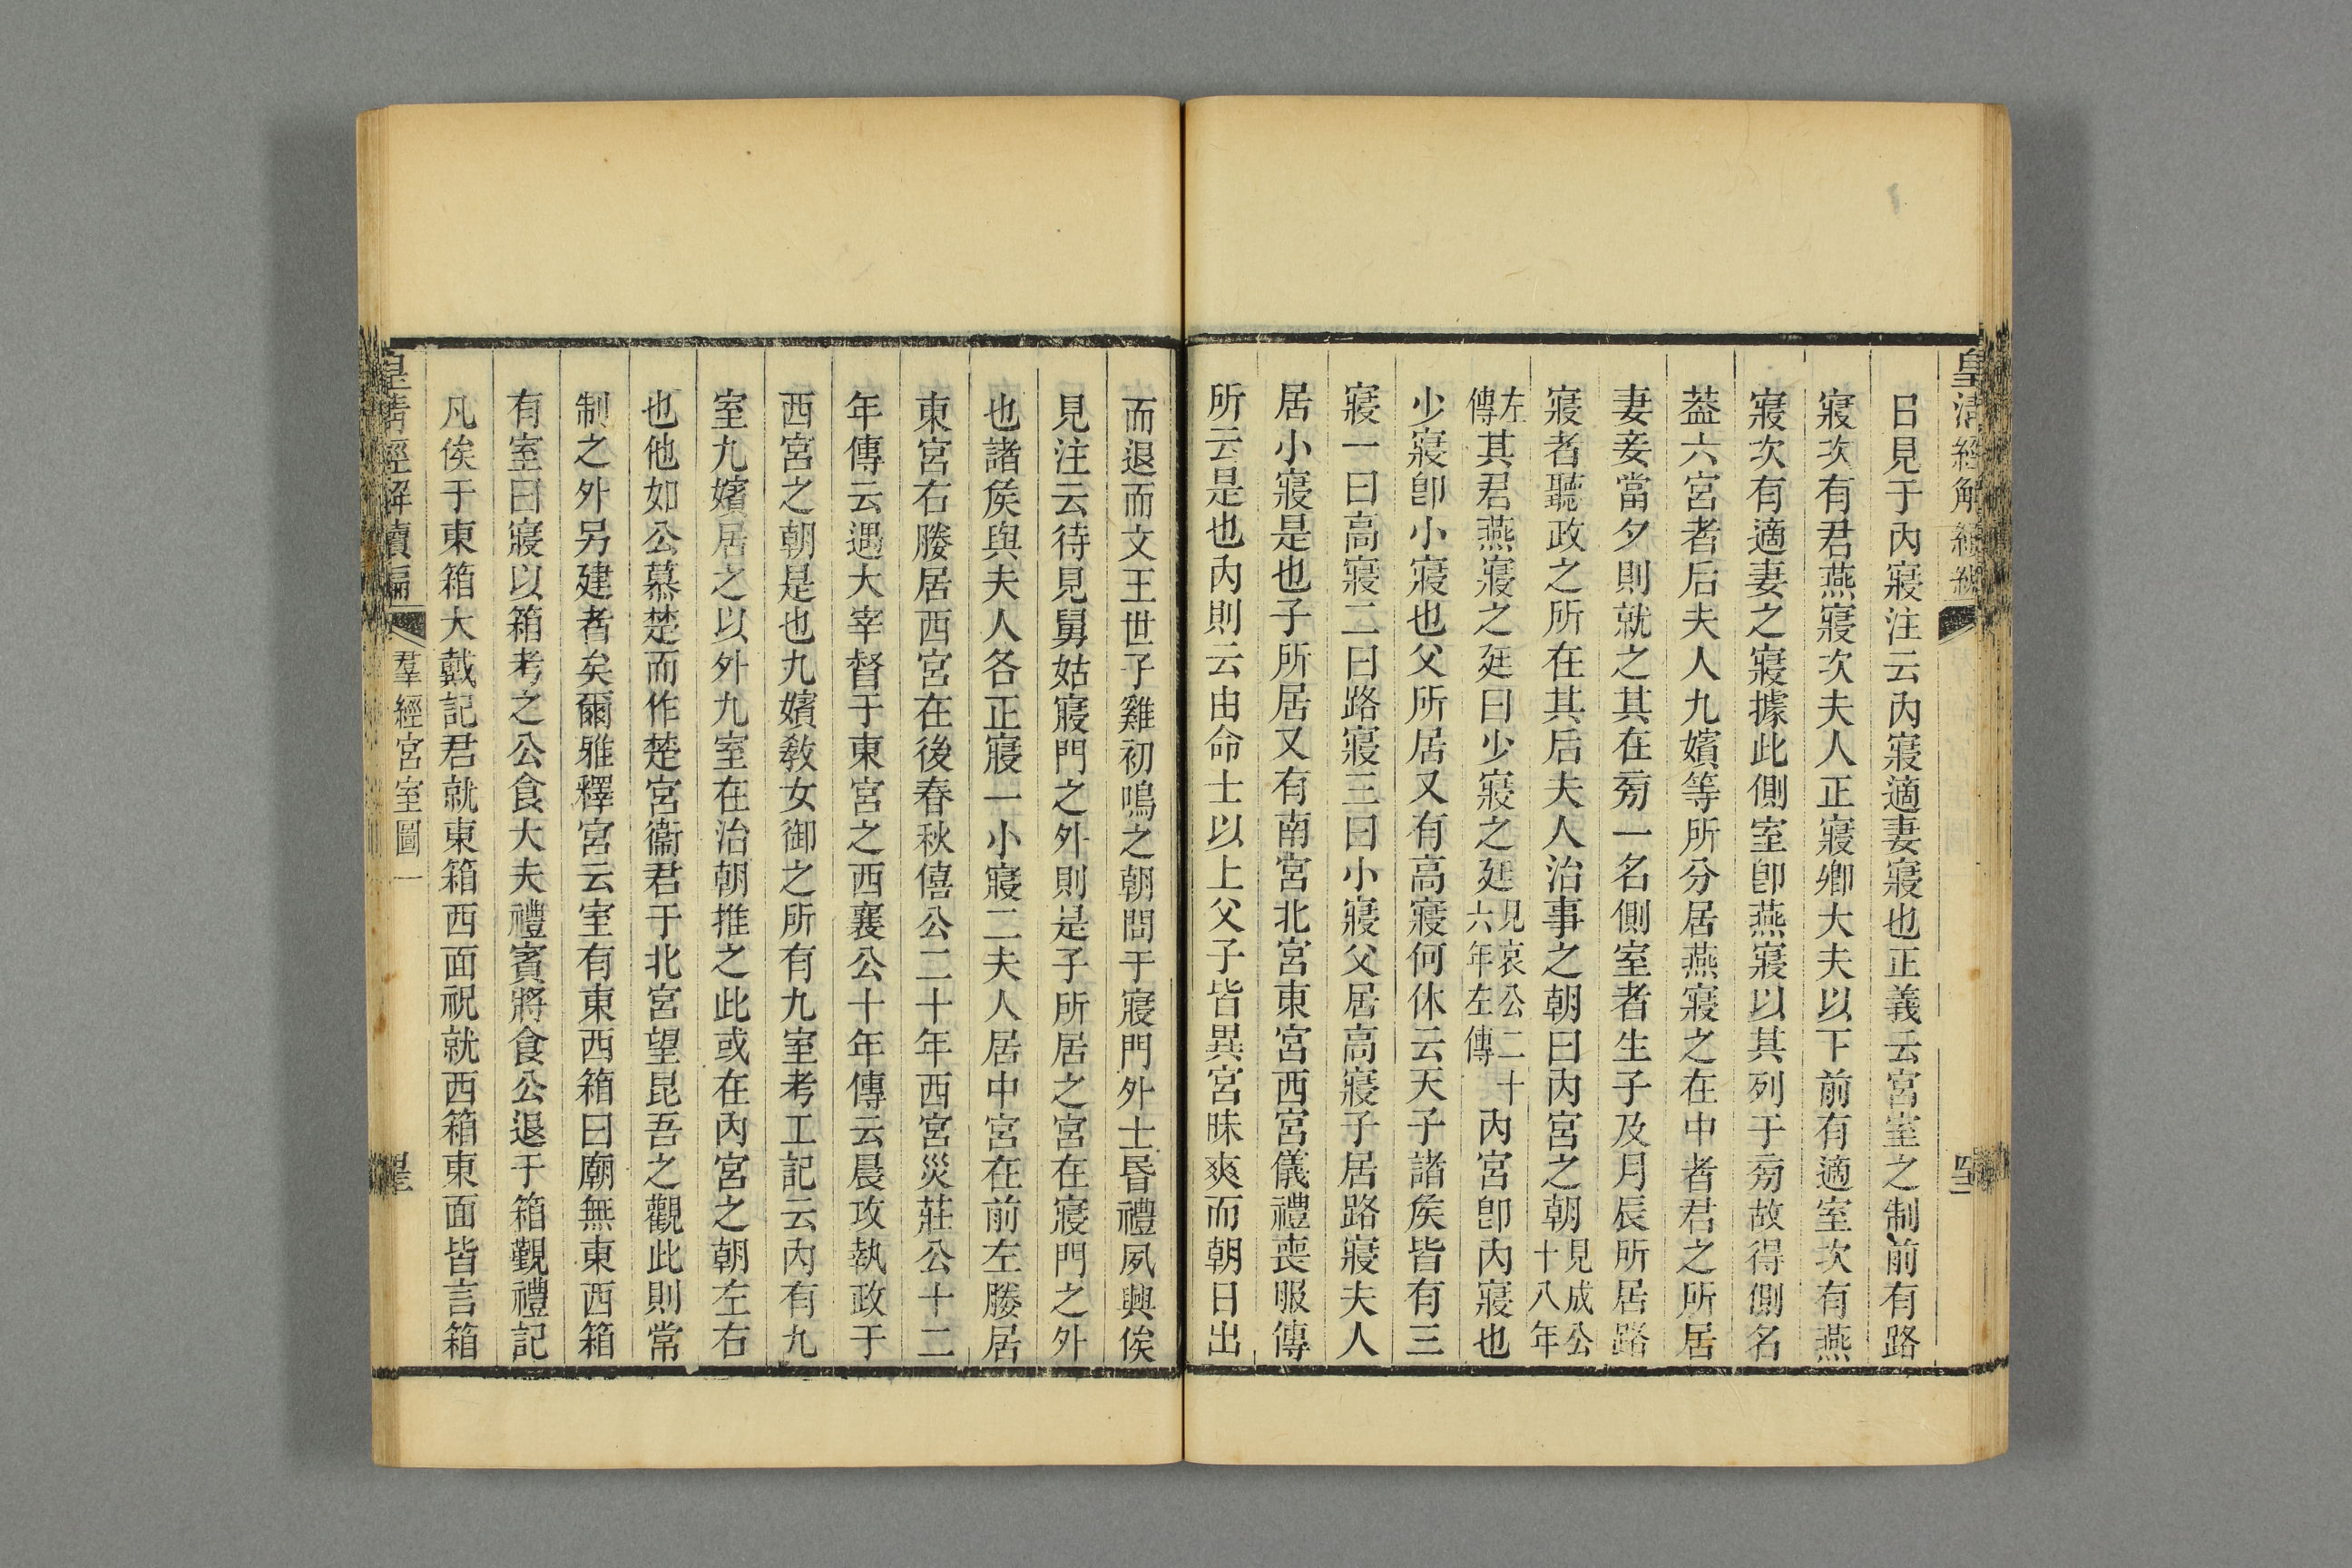 日見于內寢注云內寢適妻寢也正義云宮室之制前有路
寢次有君燕寢次夫人正寢卿大夫以下前有適室次有燕
寢次有適妻之寢據此側室卽燕寢以其列于㫄故得側名
葢六宮者后夫人九嬪等所分居燕寢之在中者君之所居
妻妾當夕則就之其在㫄一名側室者生子及月辰所居路
寢者聽政之所在其后夫人治事之朝曰內宮之朝見成公十八年
左傳其君燕寢之廷曰少寢之廷見哀公二十六年左傳內宮卽內寢也
少寢卽小寢也父所居又有高寢何休云天子諸矦皆有三
寢一曰高寢二曰路寢三曰小寢父居高寢子居路寢夫人
居小寢是也子所居又有南宮北宮東宮西宮儀禮喪服傳
所云是也內則云由命士以上父子皆異宮昧爽而朝日出
而退而文王世子雞初鳴之朝問于寢門外士昏禮夙興俟
見注云待見舅姑寢門之外則是子所居之宮在寢門之外
也諸矦與夫人各正寢一小寢二夫人居中宮在前左媵居
東宮右媵居西宮在後春秋僖公二十年西宮災莊公十二
年傳云遇大宰督于東宮之西襄公十年傳云晨攻執政于
西宮之朝是也九嬪敎女御之所有九室考工記云內有九
室九嬪居之以外九室在治朝推之此或在內宮之朝左右
也他如公慕楚而作楚宮衞君于北宮望昆吾之觀此則常
制之外另建者矣爾雅釋宮云室有東西箱曰廟無東西箱
有室曰寢以箱考之公食大夫禮賓將食公退于箱覲禮記
凡俟于東箱大戴記君就東箱西面祝就西箱東面皆言箱
皇清經解續編
羣經宮室圖一